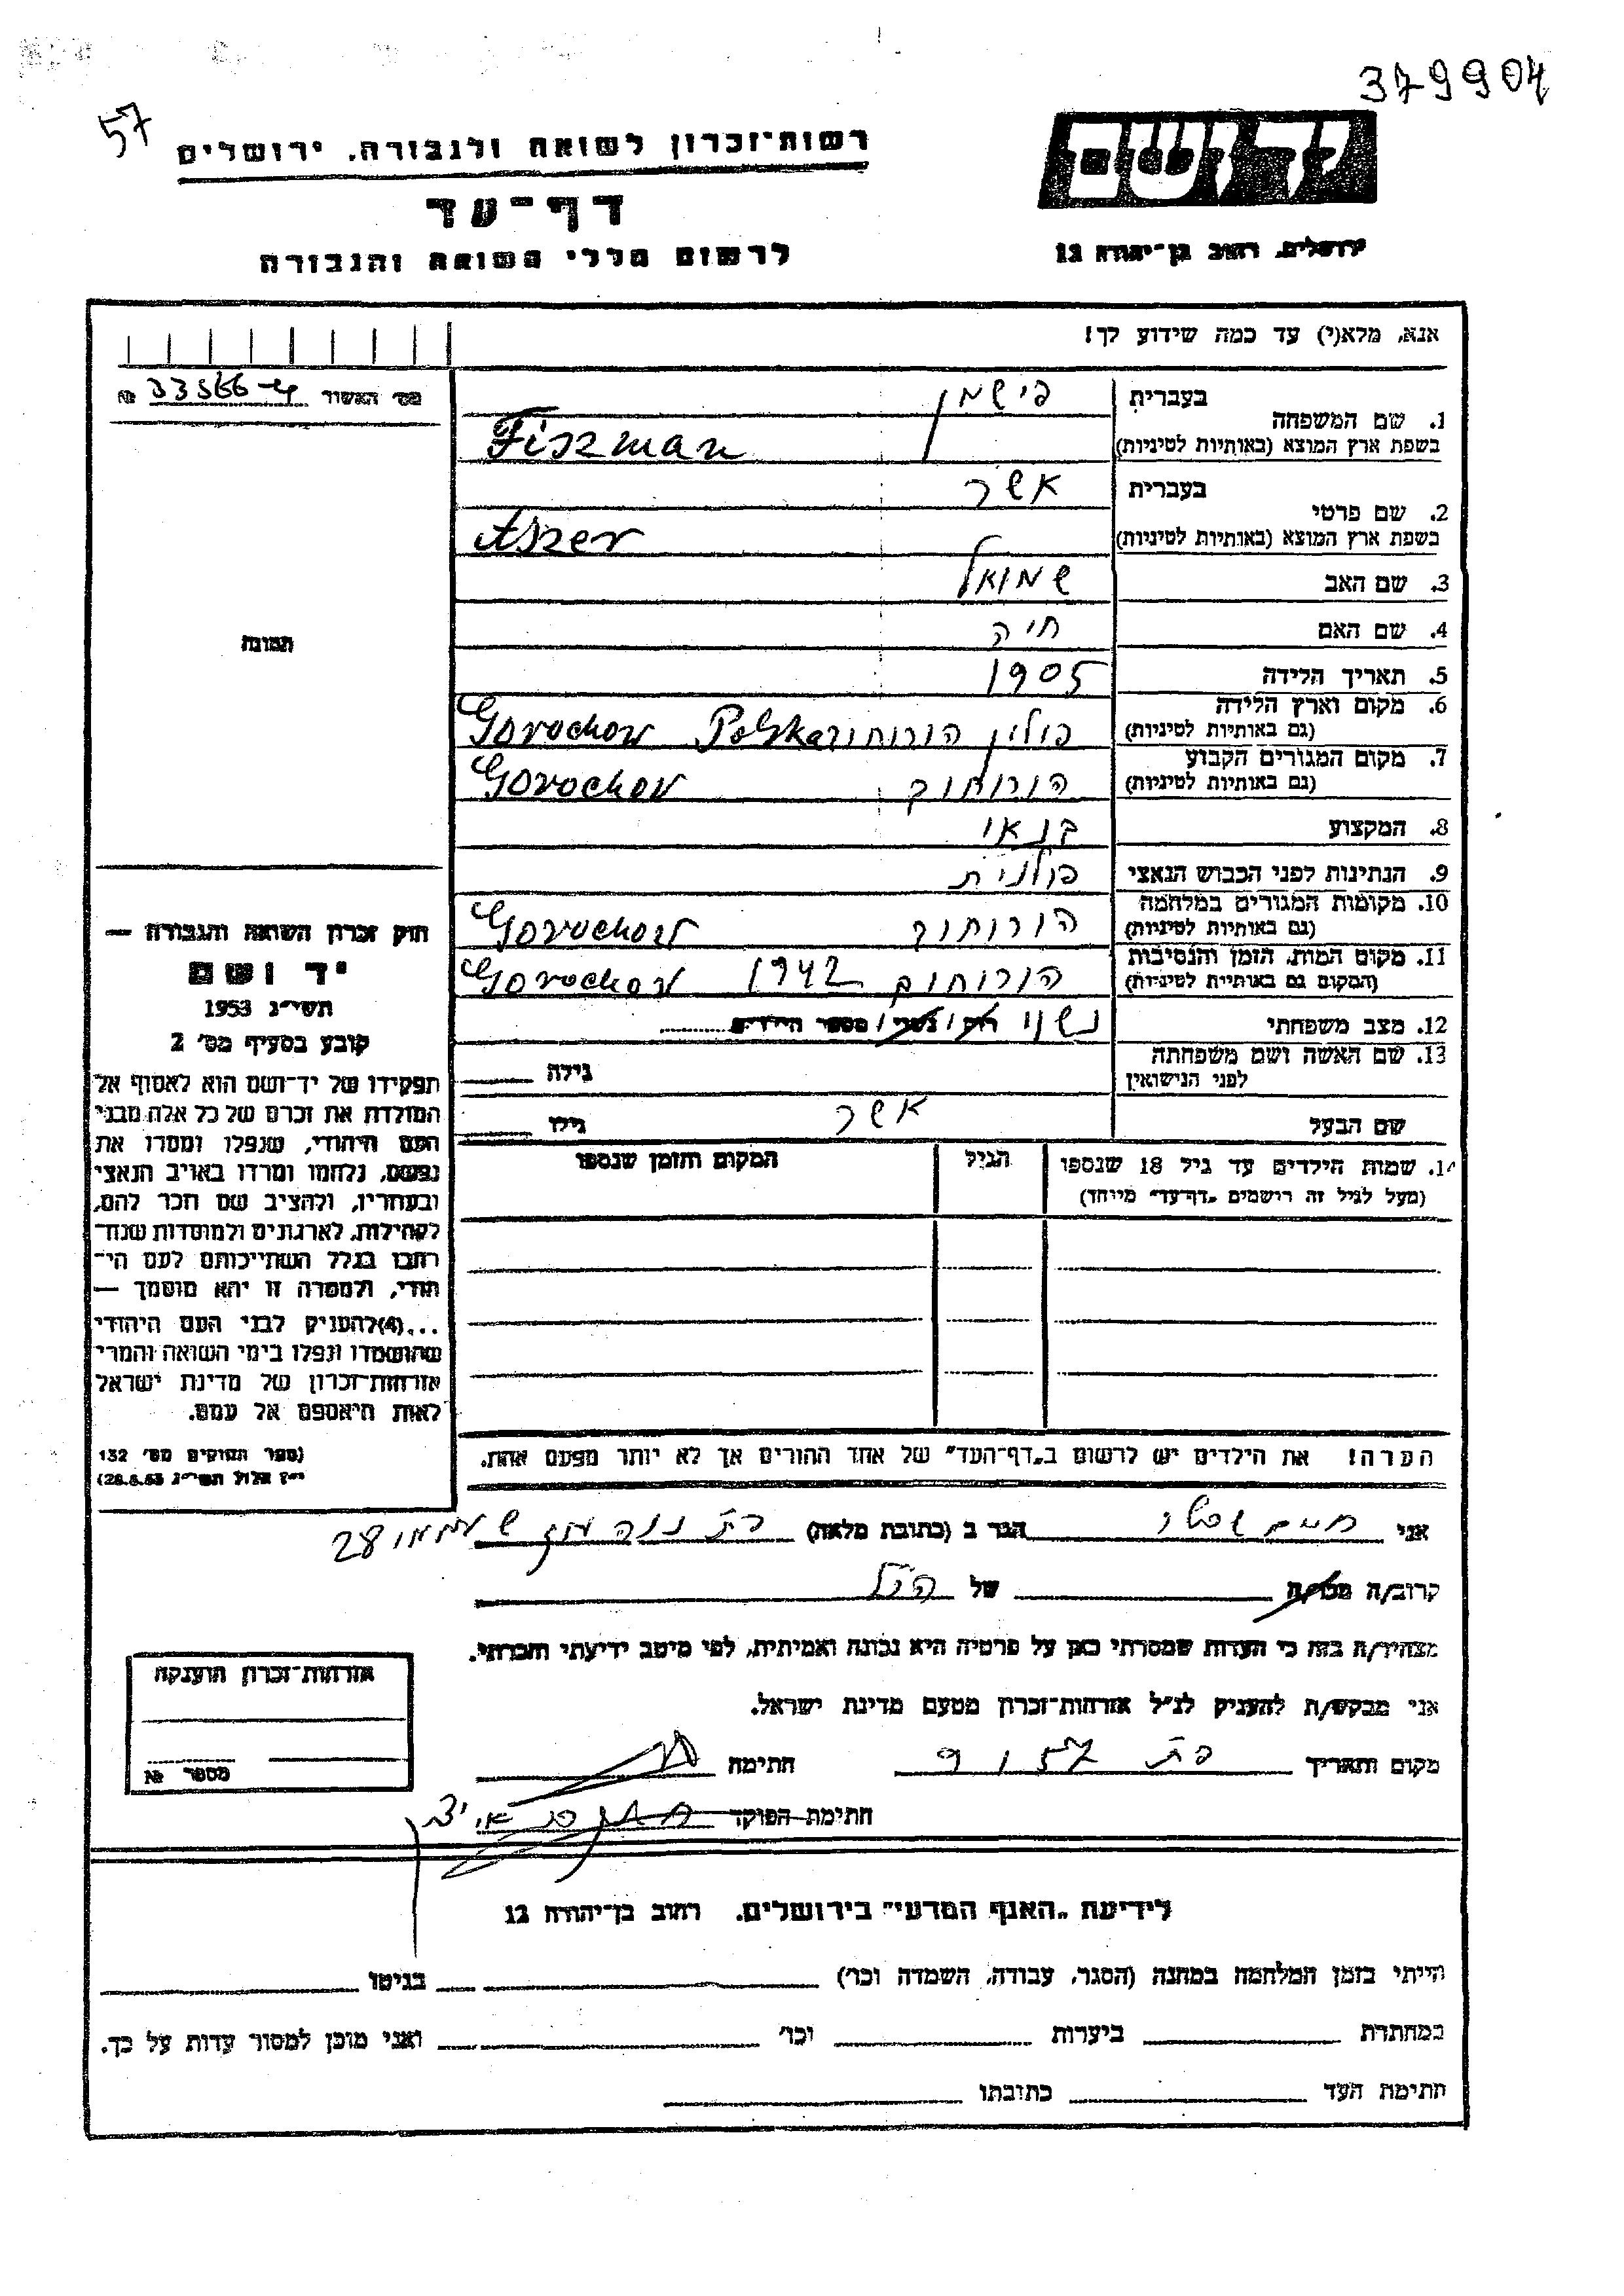 379904
57
רשות־זכרון לשואה ולגבורה, ירושלים
יד ושם
דף־עד
לרשום חללי השואה והגבורה
ירושלים, רחוב בן־יהודה 12
אנא, מלא(י) עד כמה שידוע לך!
מס׳ האשור № 33566
1. שם המשפחה
בעברית פישמן
בשפת ארץ המוצא (באותיות לטיניות) Fiszman
2. שם פרטי
בעברית אשר
בשפת ארץ המוצא (באותיות לטיניות) Aszer
3. שם האב שמואל
4. שם האם חיה
5. תאריך הלידה 1905
6. מקום וארץ הלידה
(גם באותיות לטיניות) פולין הורוחוב Polska Gorochow
7. מקום המגורים הקבוע
(גם באותיות לטיניות) הורוחוב Gorochow
8. המקצוע בנאי
9. הנתינות לפני הכבוש הנאצי פולנית
10. מקומות המגורים במלחמה
(גם באותיות לטיניות) הורוחוב Gorochow
11. מקום המות, הזמן והנסיבות
(המקום גם באותיות לטיניות) הורוחוב 1942 Gorochow
12. מצב משפחתי נשוי רוק / נשוי / מספר הילדים
13. שם האשה ושם משפחתה
לפני הנישואין גילה
שם הבעל אשר גילו
14. שמות הילדים עד גיל 18 שנספו הגיל המקום והזמן שנספו
(מעל לגיל זה רישמים „דף־עד” מייוחד)
הערה! את הילדים יש לרשום ב„דף־העד” של אחד ההורים אך לא יותר מפעם אחת.
תמונה
חוק זכרון השואה והגבורה —
יד ושם
תשי״ג 1953
קובע בסעיף מס׳ 2
תפקידו של יד־ושם הוא לאסוף אל
המולדת את זכרם של כל אלה מבני
העם היהודי, שנפלו ומסרו את
נפשם, נלחמו ומרדו באויב הנאצי
ובעוזריו, ולהציב שם וזכר להם,
לקהילות, לארגונים ולמוסדות שנח־
רבו בגלל השתייכותם לעם הי־
הודי, ולמטרה זו יהא מוסמך —
...(4)להעניק לבני העם היהודי
שהושמדו ונפלו בימי השואה והמרי
אזרחות־זכרון של מדינת ישראל
לאות היאספם אל עמם.
(ספר החוקים מס׳ 132
י״ז אלול תשי״ג 28.8.53)
אני חיים הגר ב (כתובת מלאה) 28
קרוב/ה מכר/ה של הנ״ל
מצהיר/ה בזה כי העדות שמסרתי כאן על פרטיה היא נכונה ואמיתית, לפי מיטב ידיעתי והכרתי.
אני מבקש/ת להעניק לנ״ל אזרחות־זכרון מטעם מדינת ישראל.
מקום ותאריך חתימה
חתימת הפוקד
אזרחות־זכרון הוענקה
מספר №
לידיעת „האגף המדעי” בירושלים, רחוב בן־יהודה 12
הייתי בזמן המלחמה במחנה (הסגר, עבודה, השמדה וכו׳) בגיטו
במחתרת ביערות וכו׳ ואני מוכן למסור עדות על כך.
חתימת העד כתובתו